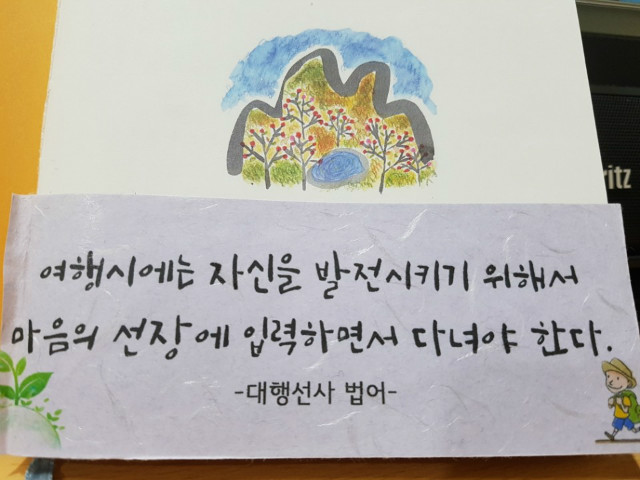 ritz
여행시에는 자신을 발전시키기 위해서
마음의 선장에 입력하면서 다녀야 한다.
-대행선사 법어-